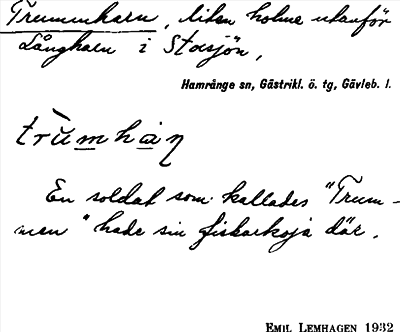 Trummharn, liten holme utanför
Långharn i Stasjön,
Hamrånge sn, Gästrikl. ö. tg, Gävleb. l.
En soldat som kallades "Trum-
men" hade sin fiskarkoja där.
EMIL LEMHAGEN 1932